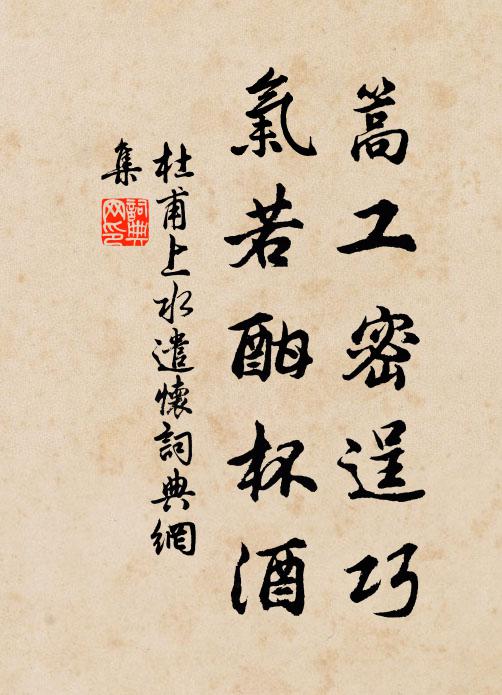 篙工密逞巧
氣若酣杯酒
杜甫上水遣懷詞典網
集
詞典
网印